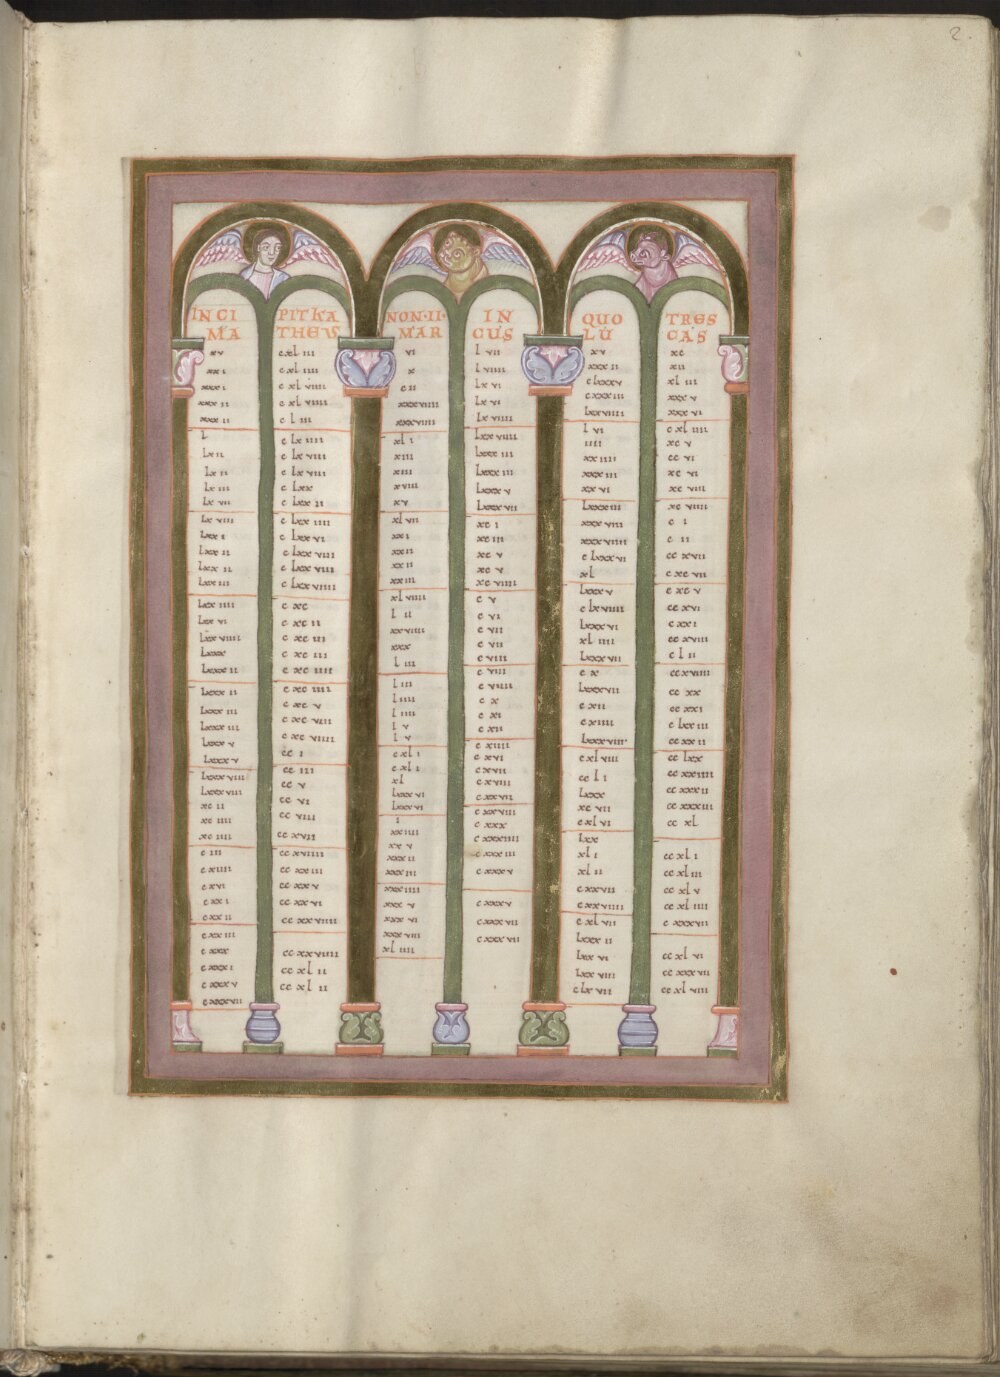 2.
INCI PIT KA NON·II· IN QUO TRES
MA THEUS MAR CUS LU CAS
xv
xx i
xxx i
xxx ii
xxx ii
l
lx ii
lx ii
lx iii
lx vii
lx viii
lxx i
lxx ii
lxx ii
lxx iii
lxx iiii
lxx vi
lxx viiii
lxxx
lxxx ii
lxxx ii
lxxx iii
lxxx iii
lxxx v
lxxx v
lxxx viiii
lxxx viii
xc ii
xc iiii
xc iiii
c iii
c xiiii
c xvi
c xx i
c xx ii
c xx iii
c xxx
c xxx i
c xxx v
c xxx vii
c xl iii
c xl iiii
c xl viii
c xl viiii
c l iii
c lx iiii
c lx viii
c lx viii
c lxx
c lxx ii
c lxx iiii
c lxx vi
c lxx viii
c lxx viii
c lxx viiii
c xc
c xc ii
c xc iii
c xc iii
c xc iiii
c xc iiii
c xc v
c xc viii
c xc viiii
cc i
cc iii
cc v
cc vi
cc viii
cc xvii
cc xviiii
cc xx iii
cc xx v
cc xx vi
cc xx viiii
cc xx viiii
cc xl ii
cc xl ii
vi
x
c ii
xxx viiii
xxx viiii
xl i
xiii
xiii
xviii
xv
xl vii
xx i
xx ii
xx ii
xx iii
xl viiii
l ii
xx viiii
xxx
l iii
l iii
l iiii
l iiii
l v
l v
c xl i
c xl i
xl
lxxx vi
lxxx vi
i
xx iiii
xx v
xxx ii
xxx iii
xxx iiii
xxx v
xxx vi
xxx viii
xl iiii
l vii
l viiii
lx vi
lx vi
lx viiii
lxx viiii
lxxx iii
lxxx iii
lxxx v
lxxx vii
xc i
xc iii
xc v
xc v
xc viiii
c v
c vi
c vii
c vii
c viii
c viii
c viiii
c x
c xi
c xii
c xiiii
c xvi
c xvii
c xviii
c xx vii
c xx viii
c xxx
c xxx iiii
c xxx iii
c xxx v
c xxx v
c xxx vii
c xxx vii
xv
xxx ii
c lxxx v
c xxx iii
lxx viiii
l vi
iiii
xx iiii
xxx iii
xx vi
lxxx iii
xxx viii
xxx viiii
c lxxx vi
xl
lxxx v
c lx viiii
lxxx vi
xl iiii
lxxx vii
c x
lxxx vii
c xii
c xiiii
lxxx viii·
c xl viii
cc l i
lxxx
xc vii
c xl vi
lxx
xl i
xl ii
c xx vii
c xx viiii
c xl vii
lxxx ii
lxx vi
lxx viii
c lx vii
xc
xii
xl iii
xxx v
xxx vi
c xl iiii
xc v
cc vi
xc vi
xc viii
xc viiii
c i
c ii
cc xvii
c xc vii
c xc v
cc xvi
c xx i
cc xviii
c l ii
cc xviiii
cc xx
cc xx i
c lxx iii
cc xx ii
cc lxx
cc xx iiii
cc xxx ii
cc xxx iii
cc xl
cc xl i
cc xl iii
cc xl v
cc xl iiii
c xxx vii
cc xl vi
cc xxx vii
cc xl viii